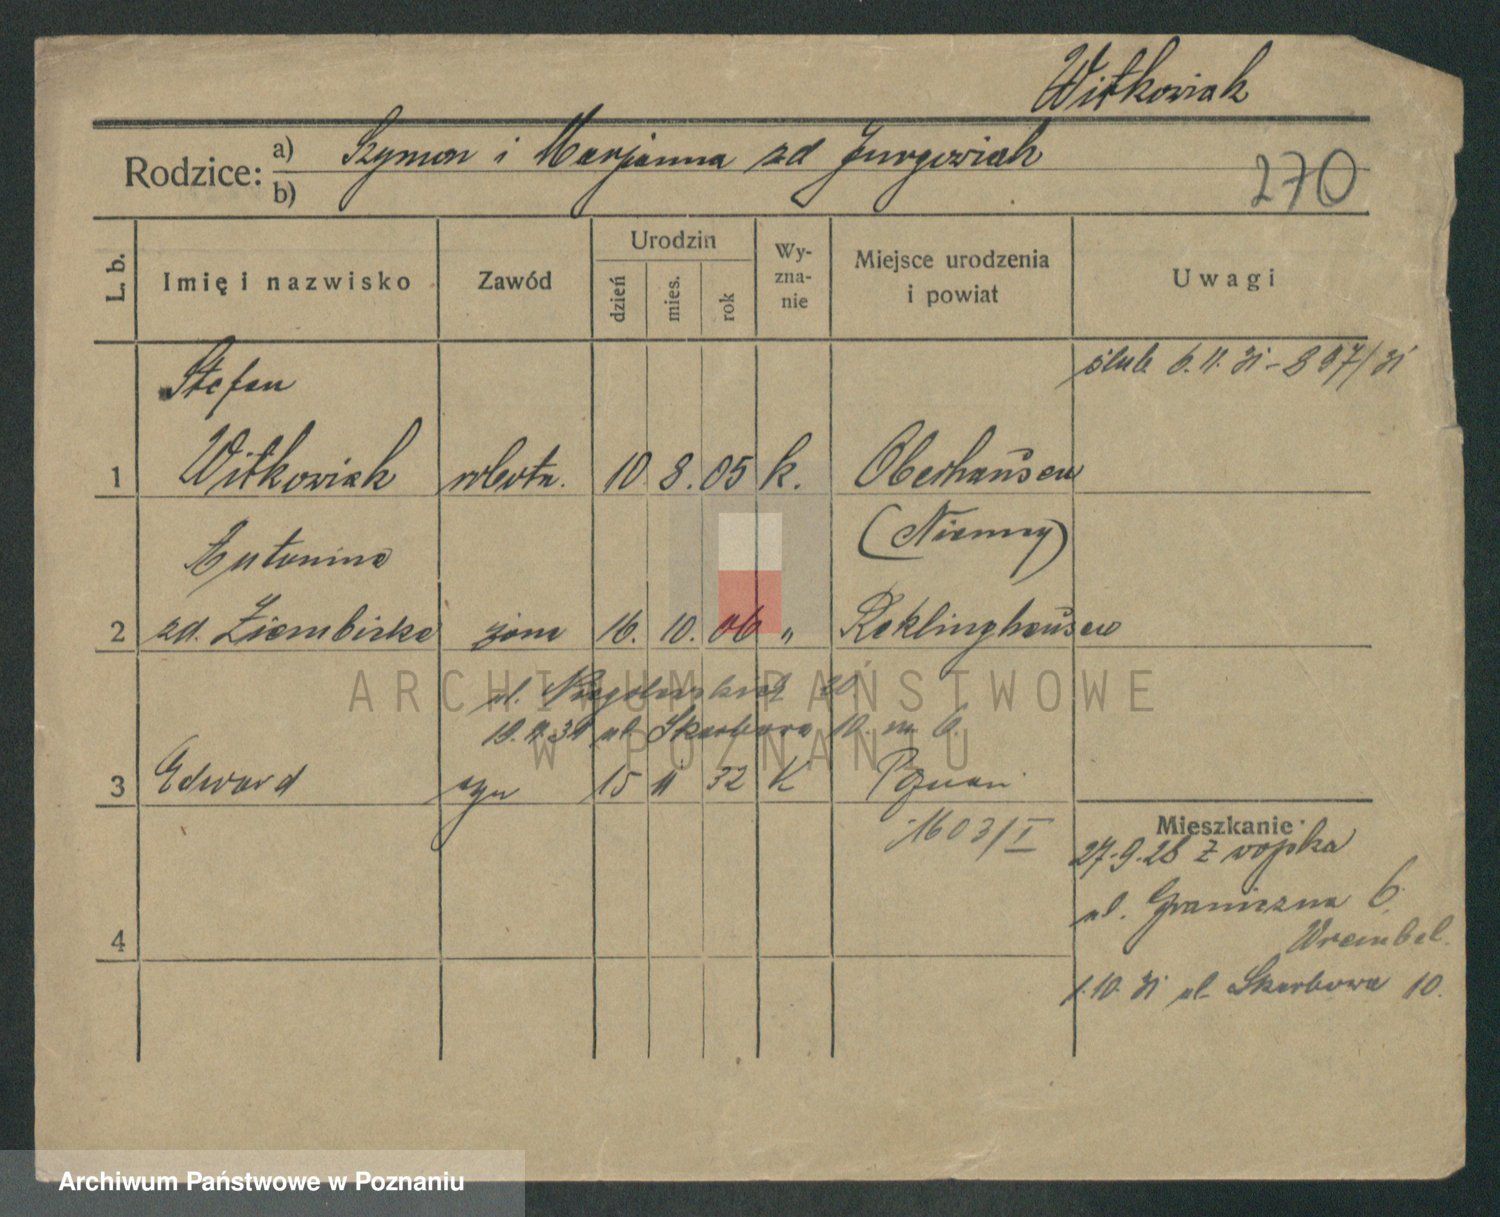 Witkowiak
Rodzice: a) Szymon i Marjanna zd Jurgowiak
b)
270
L. b.
Imię i nazwisko
Zawód
Urodzin
dzień
mies.
rok
Wy-
zna-
nie
Miejsce urodzenia
i powiat
Uwagi
ślub 6.11.31 - 897/31
Stefan
1 Witkowiak robotn. 10 8. 05 k. Oberhausen
(Niemcy)
Antonina
2 zd. Ziembiska żona 16. 10. 06 " Reklinghausen
ARCHIWUM PAŃSTWOWE
W POZNANIU
ul. 20
ul. Skarbowa 10. m 6.
3 Edward syn 15 11 32 K Poznań
1603/I
Mieszkanie
27.9.28 z wojska
ul. Graniczna 6
4
1.10.31 ul. Skarbowa 10.
Archiwum Państwowe w Poznaniu